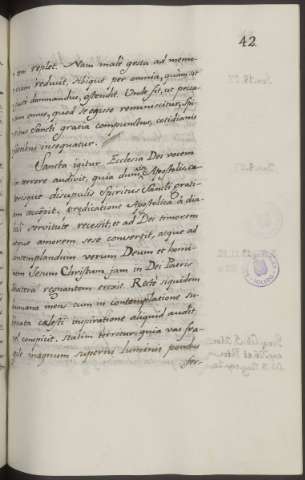 42
em replet. Nam malè gesta ad memo-
riam reducit, sibique per omnia, quàm sit
damnandus, ostendit. Unde fit, ut pecca-
tum omne, quod se egisse reminiscitur, Spi-
ritus Sancti gratia compunctus, cotidianis
insequatur.
Sancta igitur Ecclesia Dei vocem
terrore audivit, quia dum Apostolica
discipulis Spiritus Sancti grati-
am accepit, predicatione Apostolica à dia-
servitute recessit, et ad Dei timorem
amorem sese convertit, atque ad
contemplandum verum Deum et homi-
nem Jesum Christum, jam in Dei Patris
dextera regnantem erexit. Rectè siquidem
humana mens cum in contemplatione su-
caelesti inspiratione aliquid audit,
conspicit, statim terretur; quia vas fra-
magnum superni luminis pondus
fer-